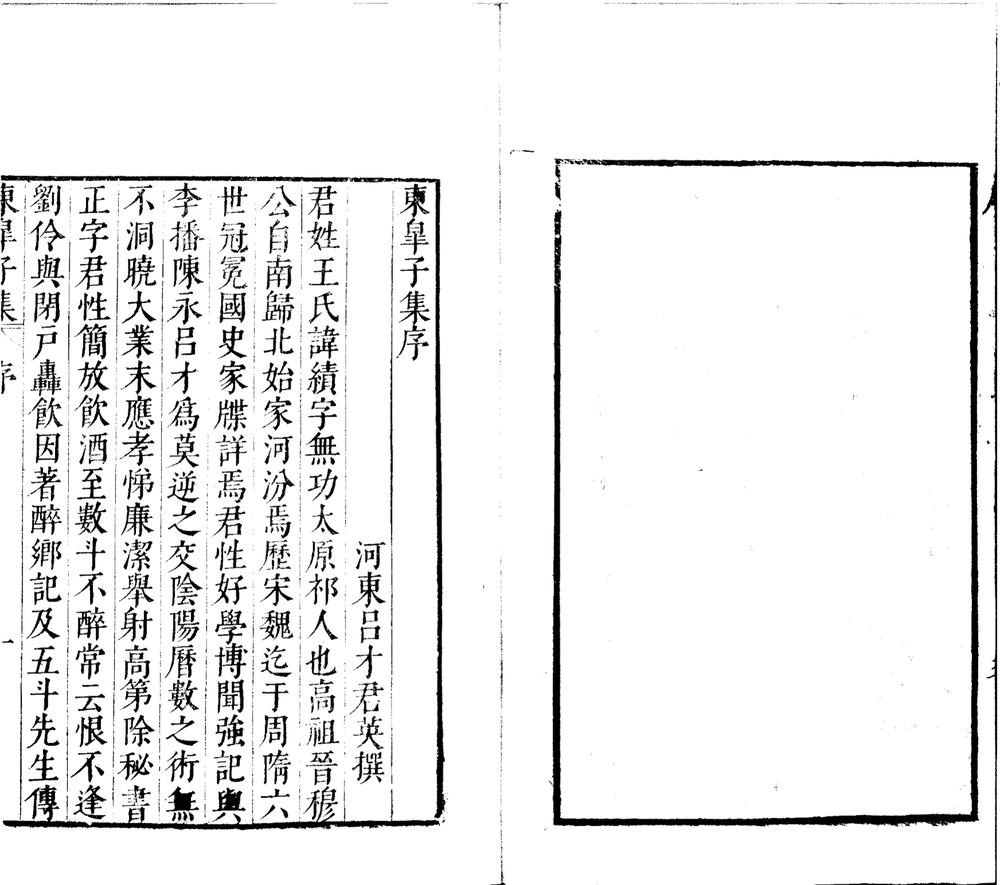 東臯子集序
河東呂才君英撰
君姓王氏諱績字無功太原祁人也高祖晉穆
公自南歸北始家河汾焉歷宋魏迄于周隋六
世冠冕國史家牒詳焉君性好學博聞強記與
李播陳永呂才爲莫逆之交陰陽曆數之術無
不洞曉大業末應孝悌廉潔舉射高第除秘書
正字君性簡放飲酒至數斗不醉常云恨不逢
劉伶與閉戶轟飲因著醉鄉記及五斗先生傳
東臯子集 序 一